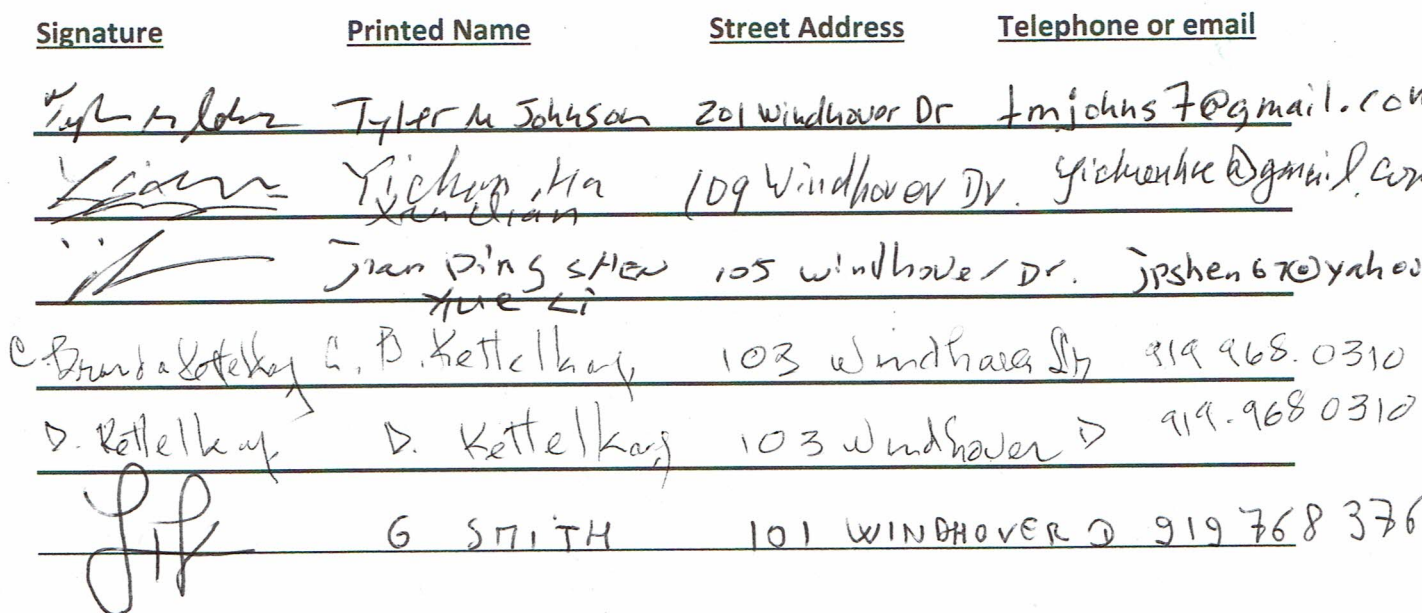 Signature Printed Name Street Address Telephone or email
Tyler M Johnson 201 Windhover Dr tmjohns7@gmail.com
Yichun 109 Windhover Dr. @gmail.com
Jian Ping SHEN 105 windhover Dr. jpshen67@yahoo
Yue Li
C. B. Kettelkamp 103 Windhover 919 968.0310
D. Kettelkamp D. Kettelkamp 103 Windhover D 919.968 0310
G SMITH 101 WINDHOVER D 919 768 376